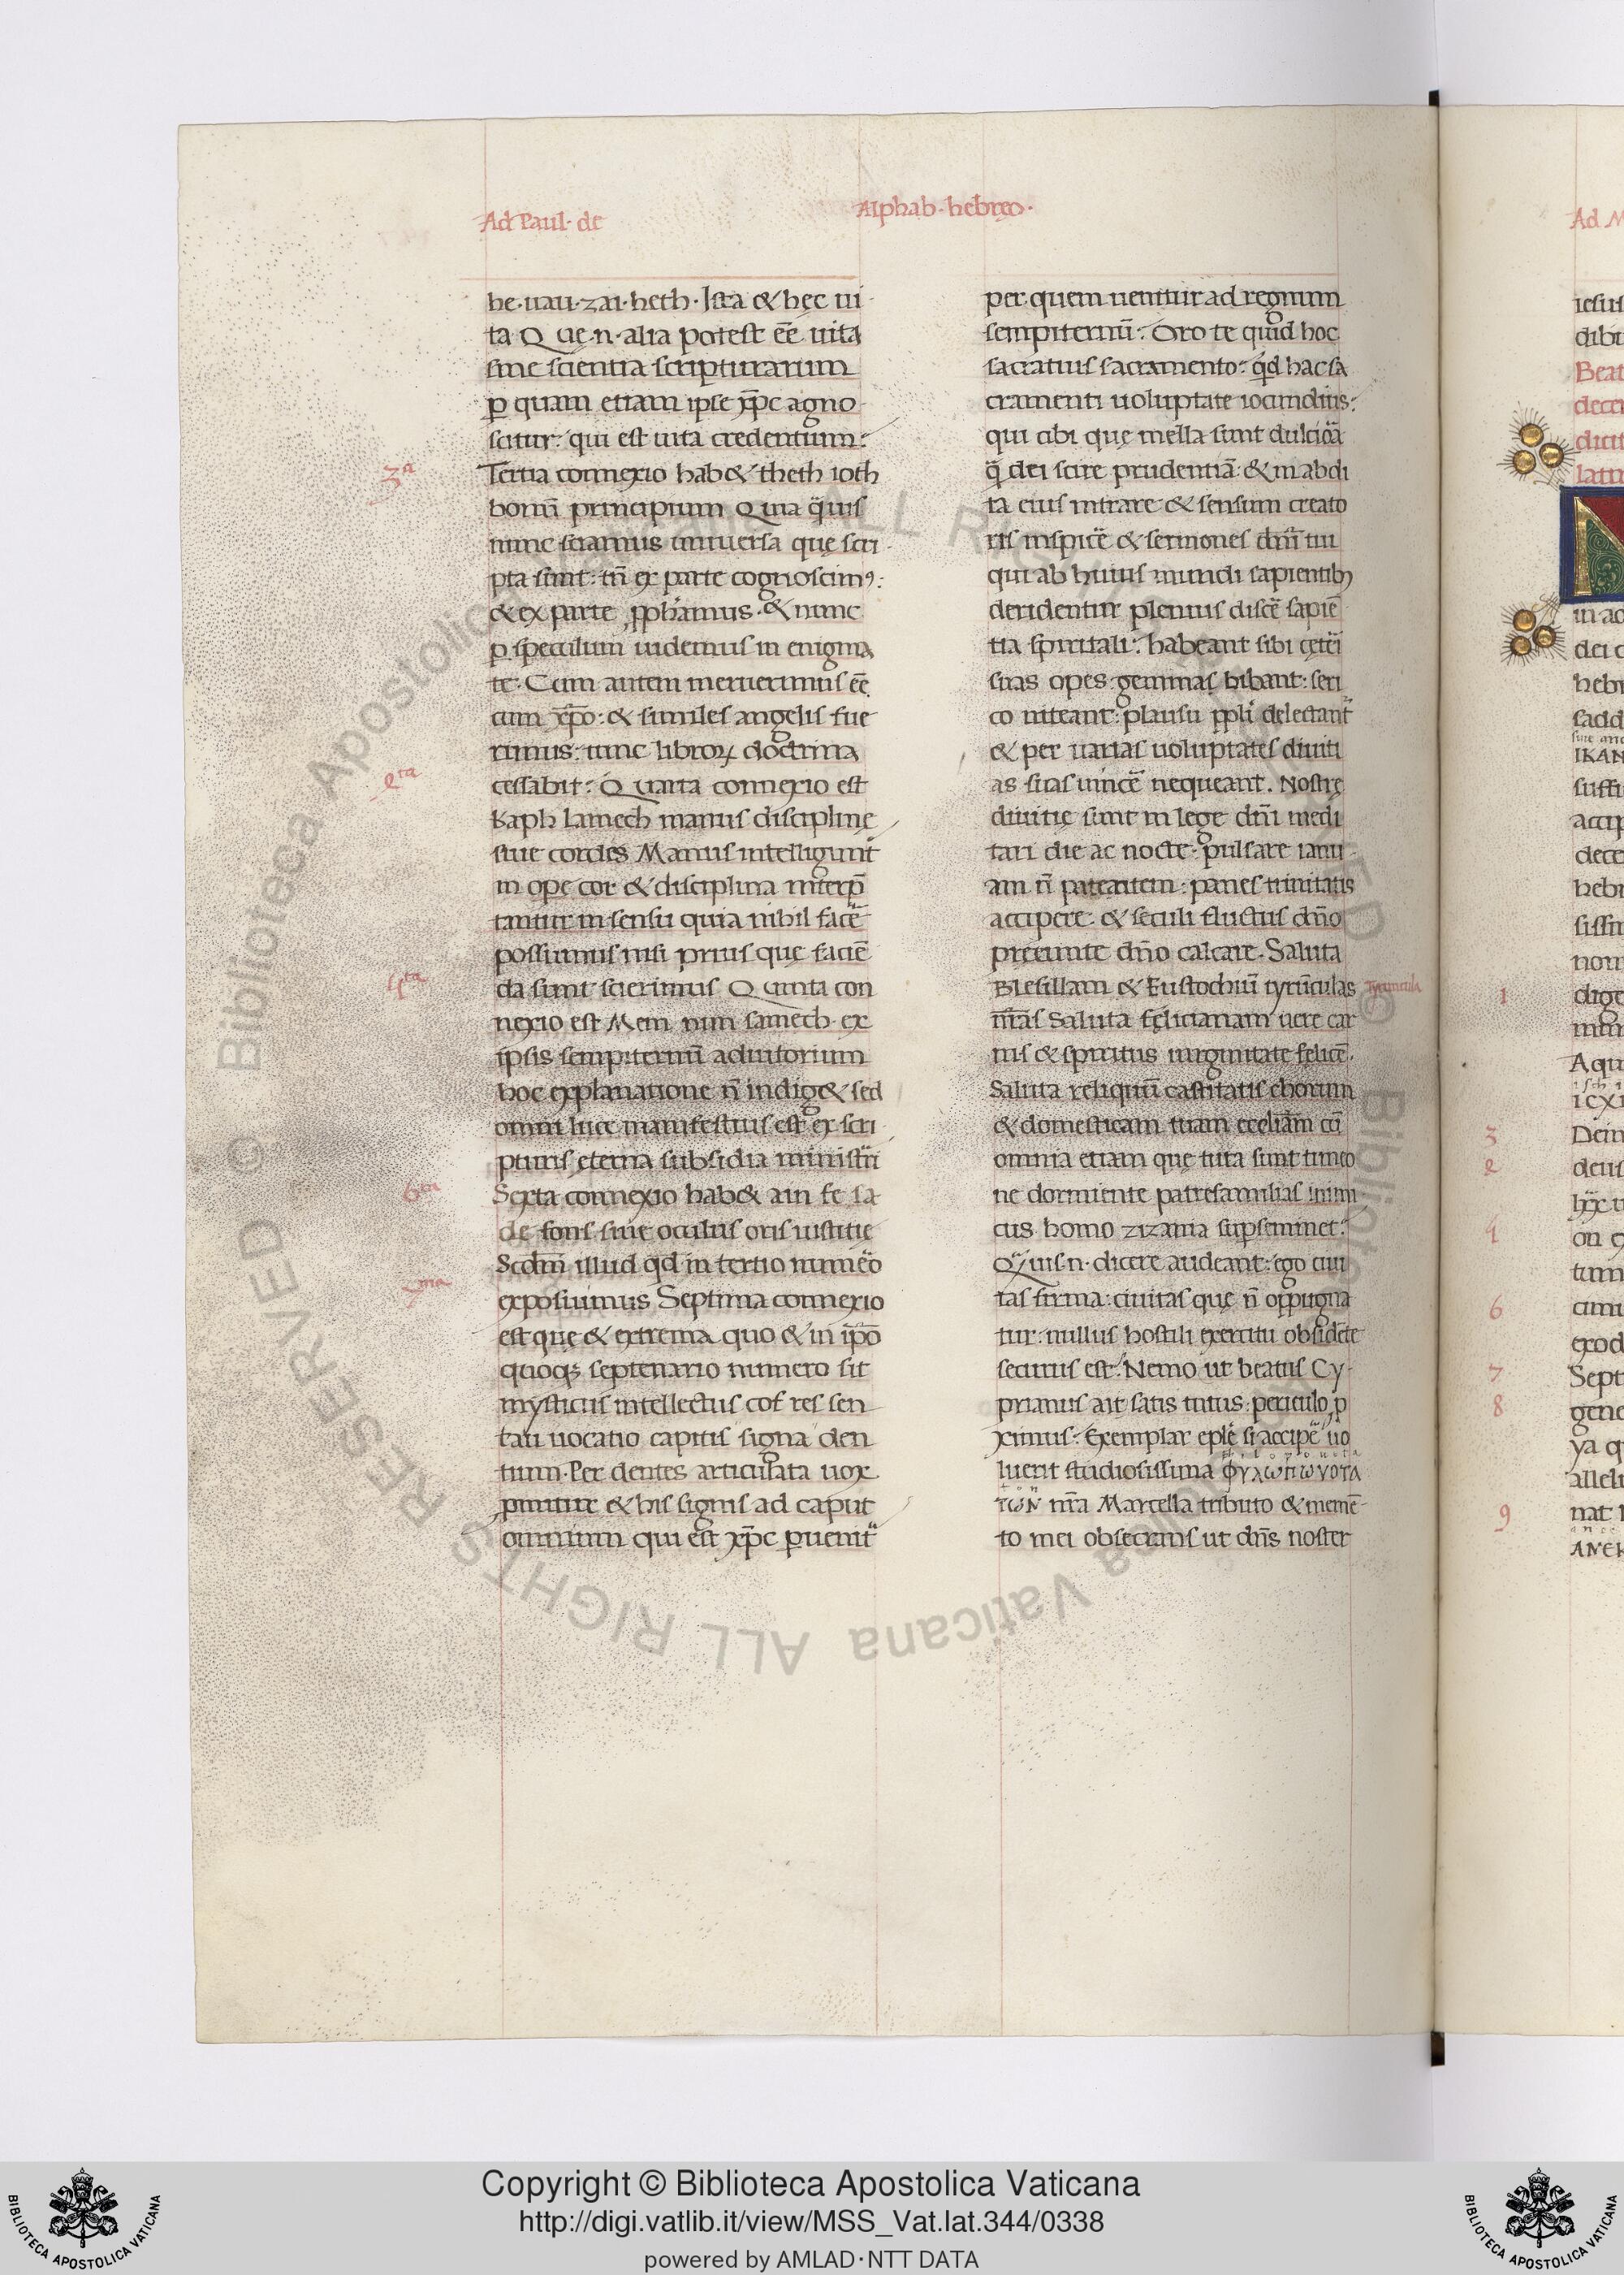 Ad Paul· de Alphab· hebreo·
he· uau· zai· heth· Ista & hęc ui
ta Quę·n· alia potest eẽ uita
sine scientia scripturarum
ꝑ quam etiam ipse xp̃c agno
scitur: qui est uita credentium:
3ᵃ
Tertia connexio hab& theth ioth
bonũ principium Quia quis
nunc sciamus uniuersa quę scri
pta sunt: tñ ex parte cognoscimꝰ:
& ex parte ꝓph̃amus· & nunc
ꝑ speculum uidemus in enigma
te· Cum autem meruerimus eẽ
cum xp̃o: & similes angelis fue
rimus: tunc libroꝝ doctrina
cessabit: Quarta connexio est
Kaph lamech manus disciplinę
siue cordis Manus intelligunt
in ope cor & disciplina interp̃
tantur in sensu quia nihil facẽ
possumus nisi prius que faciẽ
4ᵗᵃ
da sunt scierimus Quinta con
nexio est Mem nun samech· ex
ipsis sempiternũ adiutorium
hoc explanatione ñ indig& sed
omni luce manifestius est ex scri
pturis ęterna subsidia ministri
6ᵗᵃ
Sexta connexio hab& ain fe sa
de fons siue oculus oris iustitię
Scdm̃ illud qd in tertio numeo
7ᵐᵃ
exposuimus Septima connexio
est quę & extrema quo & in ip̃o
quoqꝫ septenario numero sit
mysticus intellectus cof res sen
tau uocatio capitis signa den
tium· Per dentes articulata uox
ꝓmitur & his signis ad caput
omnium qui est xp̃c ꝑuenit
per quem uenitur ad regnum
sempiternũ: Oro te quid hoc
sacratius sacramento: qd hac sa
cramenti uoluptate iocundius:
qui cibi quę mella sunt dulciora
q̃ dei scire prudentiã: & in abdi
ta eius intrare & sensum creato
ris inspicẽ & sermones dñi tui
qui ab huius mundi sapientibꝫ
deridentur plenius discẽ sapiẽ
tia spiritali: habeant sibi cęteri
suas opes· gemmas bibant: seri
co niteant: plausu ppli delectant
& per uarias uoluptates diuiti
as suas uincẽ nequeant. Nostrę
diuitię sunt in lege dñi medi
tari die ac nocte· pulsare ianu
am ñ patentem: panes trinitatis
accipere· & seculi fluctus dño
pręeunte dño calcare· Saluta
Blesillam & Eustochiũ tyrũculas
Tyruncula
nr̃as Saluta felicianam uere car
nis & spiritus uirginitate felicẽ·
Saluta reliquũ castitatis chorum
& domesticam tuam eccliam cũ
omnia etiam que tuta sunt timeo
ne dormiente patrefamilias inimi
cus homo zizania supseminet:
Quis·n· dicere audeant: ego ciui
tas firma: ciuitas quę ñ oppugna
tur: nullus hostili exercitu obsidẽte
securus est: Nemo ut beatus Cy
prianus ait satis tutus: periculo ꝓ
ximus: Exemplar eple si accipe uo
luerit studiosissima φυλωπωνοτα
των nr̃a Marcella tributo & memẽ
to mei obsecrans ut dñs noster
Ad M
iesus
dibi
Beat
decem
dicit
latin
in ac
dei
hebr
sadd
IKAN
suffi
accip
dece
hebr
sissi
nom
1
dige
Aqu
ICXI
3
Dein
2
deus
4
on
tum
6
cum
exod
7
Sept
8
gene
ya q
allel
9
nat
ANEK
© Biblioteca Apostolica Vaticana ALL RIGHTS RESERVED © Biblioteca Apostolica Vaticana ALL RIGHTS RESERVED
BIBLIOTECA APOSTOLICA VATICANA
Copyright © Biblioteca Apostolica Vaticana
http://digi.vatlib.it/view/MSS_Vat.lat.344/0338
powered by AMLAD·NTT DATA
BIBLIOTECA APOSTOLICA VATICANA